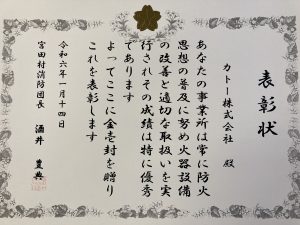 表彰状
カトー株式会社 殿
あなたの事業所は常に防火
思想の普及に努め火器設備
の改善と適切な取扱いを実
行されその成績は特に優秀
であります
よってここに金壱封を贈り
これを表彰します
令和六年一月十四日
宮田村消防団長 酒井